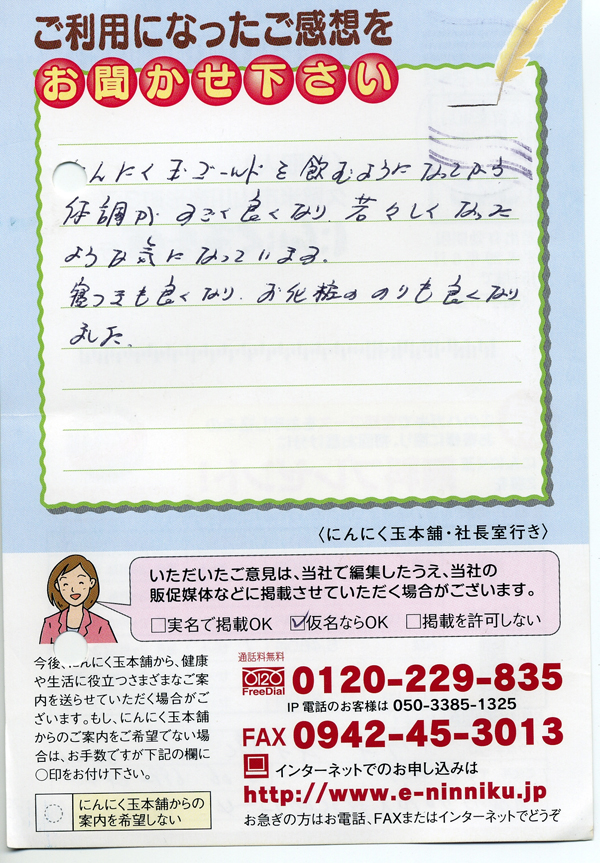 ご利用になったご感想を
お聞かせ下さい
にんにく玉ゴールドを飲むようになってから
体調がすごく良くなり、若々しくなった
ような気になっています。
寝つきも良くなり、お化粧ののりも良くなり
ました。
〈にんにく玉本舗・社長室行き〉
いただいたご意見は、当社で編集したうえ、当社の
販促媒体などに掲載させていただく場合がございます。
□実名で掲載OK ☑仮名ならOK □掲載を許可しない
今後、にんにく玉本舗から、健康
や生活に役立つさまざまなご案
内を送らせていただく場合がご
ざいます。もし、にんにく玉本舗
からのご案内をご希望でない場
合は、お手数ですが下記の欄に
○印をお付け下さい。
にんにく玉本舗からの
案内を希望しない
通話料無料
FreeDial 0120-229-835
IP電話のお客様は 050-3385-1325
FAX 0942-45-3013
インターネットでのお申し込みは
http://www.e-ninniku.jp
お急ぎの方はお電話、FAXまたはインターネットでどうぞ